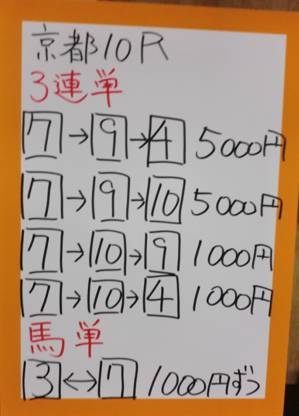 京都10R
3連単
7→9→4 5000円
7→9→10 5000円
7→10→9 1000円
7→10→4 1000円
馬単
3↔7 1000円ずつ